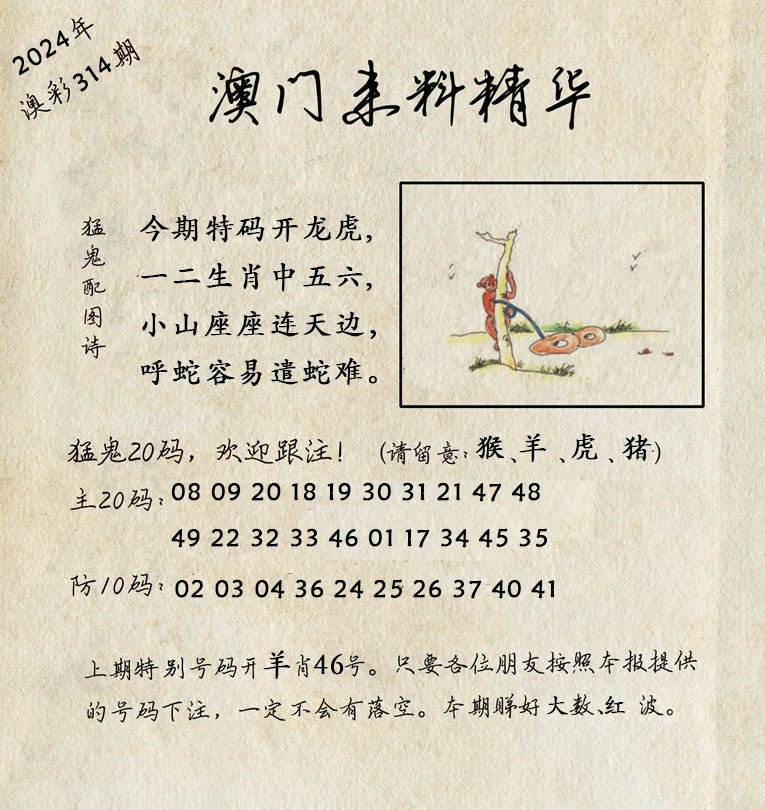 2024年
澳彩314期
澳门来料精华
猛鬼配图诗
今期特码开龙虎，
一二生肖中五六，
小山座座连天边，
呼蛇容易遣蛇难。
猛鬼20码，欢迎跟注！（请留意：猴、羊、虎、猪）
主20码：08 09 20 18 19 30 31 21 47 48
49 22 32 33 46 01 17 34 45 35
防10码：02 03 04 36 24 25 26 37 40 41
上期特别号码开羊肖46号。只要各位朋友按照本报提供
的号码下注，一定不会有落空。本期睇好大数、红 波。